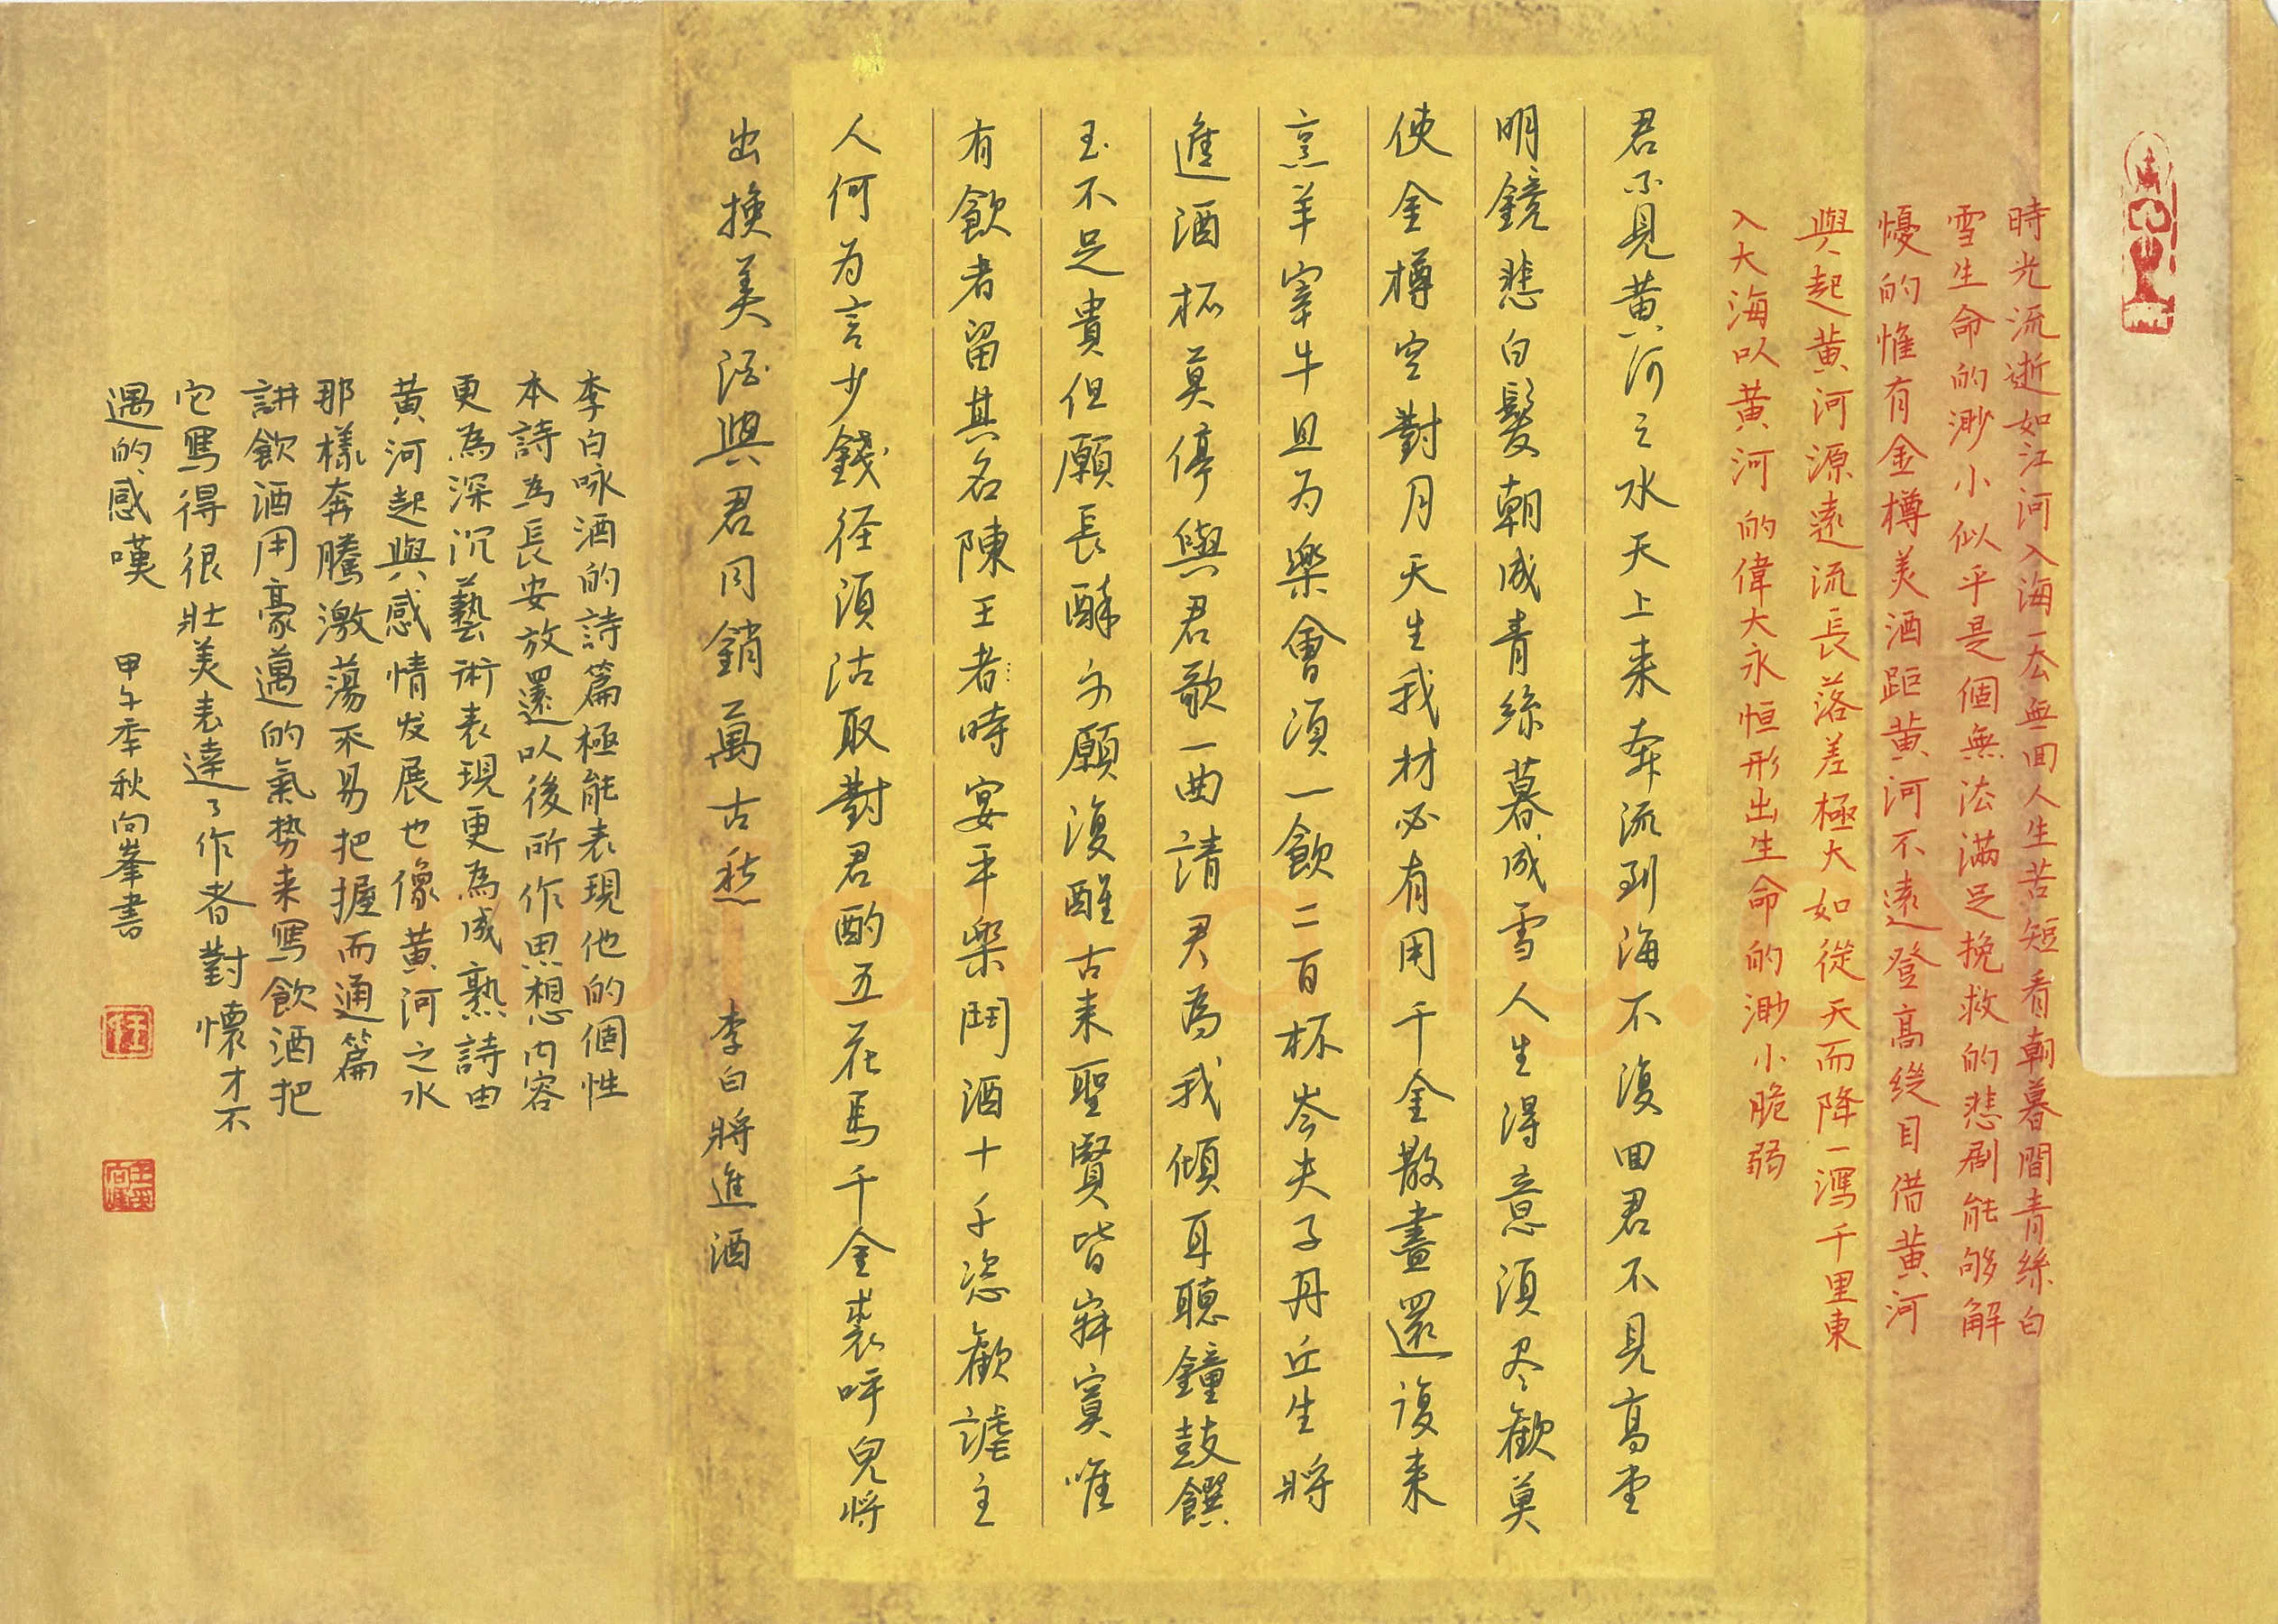 時光流逝如江河入海一去無回人生苦短看朝暮間青絲白
雪生命的渺小似乎是個無法滿足挽救的悲劇能够解
憂的惟有金樽美酒距黄河不遠登高縱目借黄河
與起黄河源遠流長落差極大如從天而降一瀉千里東
入大海以黄河的偉大永恒形出生命的渺小脆弱
君不見黄河之水天上来奔流到海不復回君不見高堂
明鏡悲白髮朝成青絲暮成雪人生得意須尽歡莫
使金樽空對月天生我材必有用千金散盡還復来
烹羊宰牛且为樂會須一飲三百杯岑夫子丹丘生將
進酒杯莫停與君歌一曲請君為我傾耳聽鐘鼓饌
玉不足貴但願長醉不願復醒古来聖賢皆寂寞唯
有飲者留其名陳王者時宴平樂鬥酒十千恣歡謔主
人何为言少錢径須沽取對君酌五花馬千金裘呼兒将
出換美酒與君同銷萬古愁 李白將進酒
李白咏酒的詩篇極能表現他的個性
本詩為長安放還以後所作思想内容
更為深沉藝術表現更為成熟詩由
黄河起興感情发展也像黄河之水
那樣奔騰激蕩不易把握而通篇
講飲酒用豪邁的氣势来寫飲酒把
它寫得很壮美表達了作者對懷才不
遇的感嘆 甲午季秋向峯書